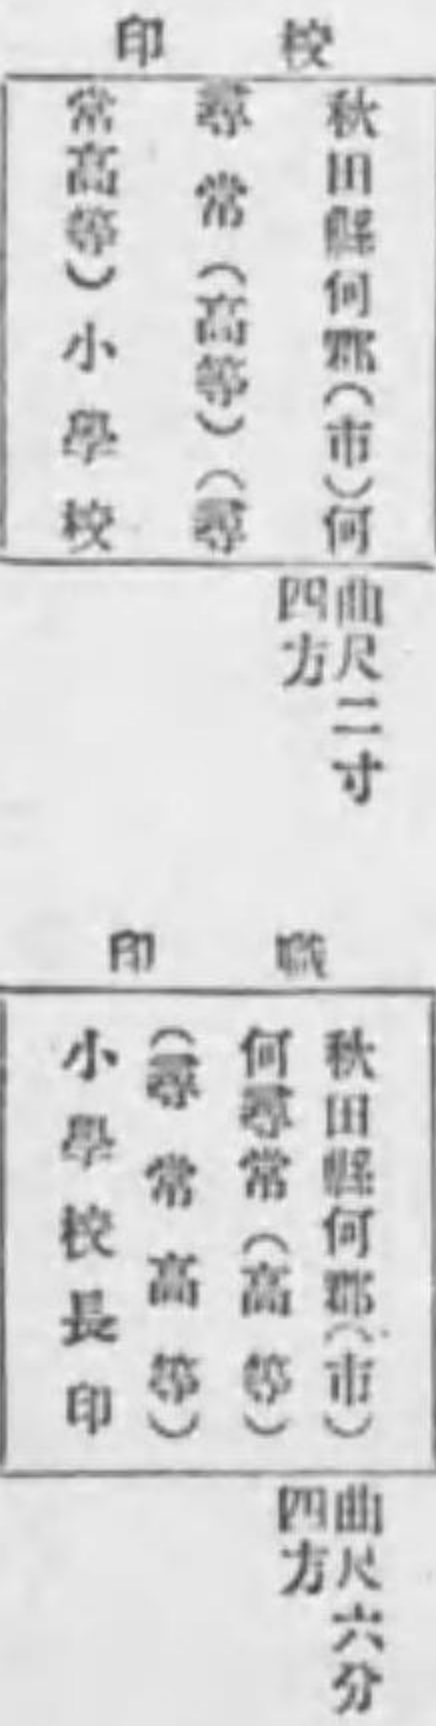 校印
秋田縣何郡(市)何
尋常(高等)(尋
常高等)小學校
曲尺二寸
四方
職印
秋田縣何郡(市)
何尋常(高等)
(尋常高等)
小學校長印
曲尺六分
四方